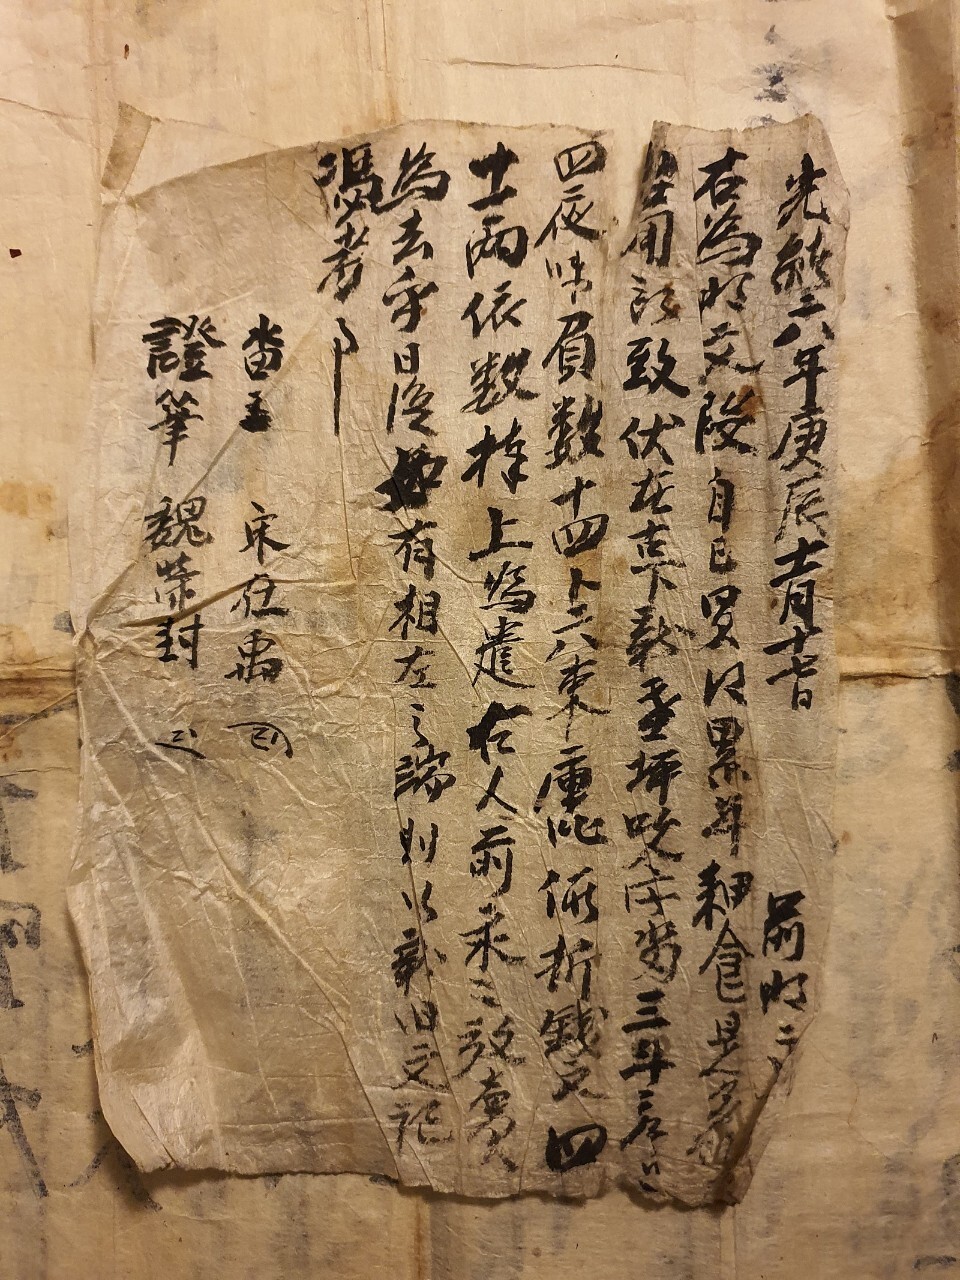 光緒六年庚辰十一月十七日 前明文
右為明文段自己買得累年耕食是多可
要用所致伏在 坪 字畓三斗落只
四夜味負數十四卜六束庫 價折錢文四
十兩依數捧上為遣右人前永々放賣
為去乎日後如有相左之端則以新旧文記
憑考事
畓主 宋在禹
證筆 魏榮封